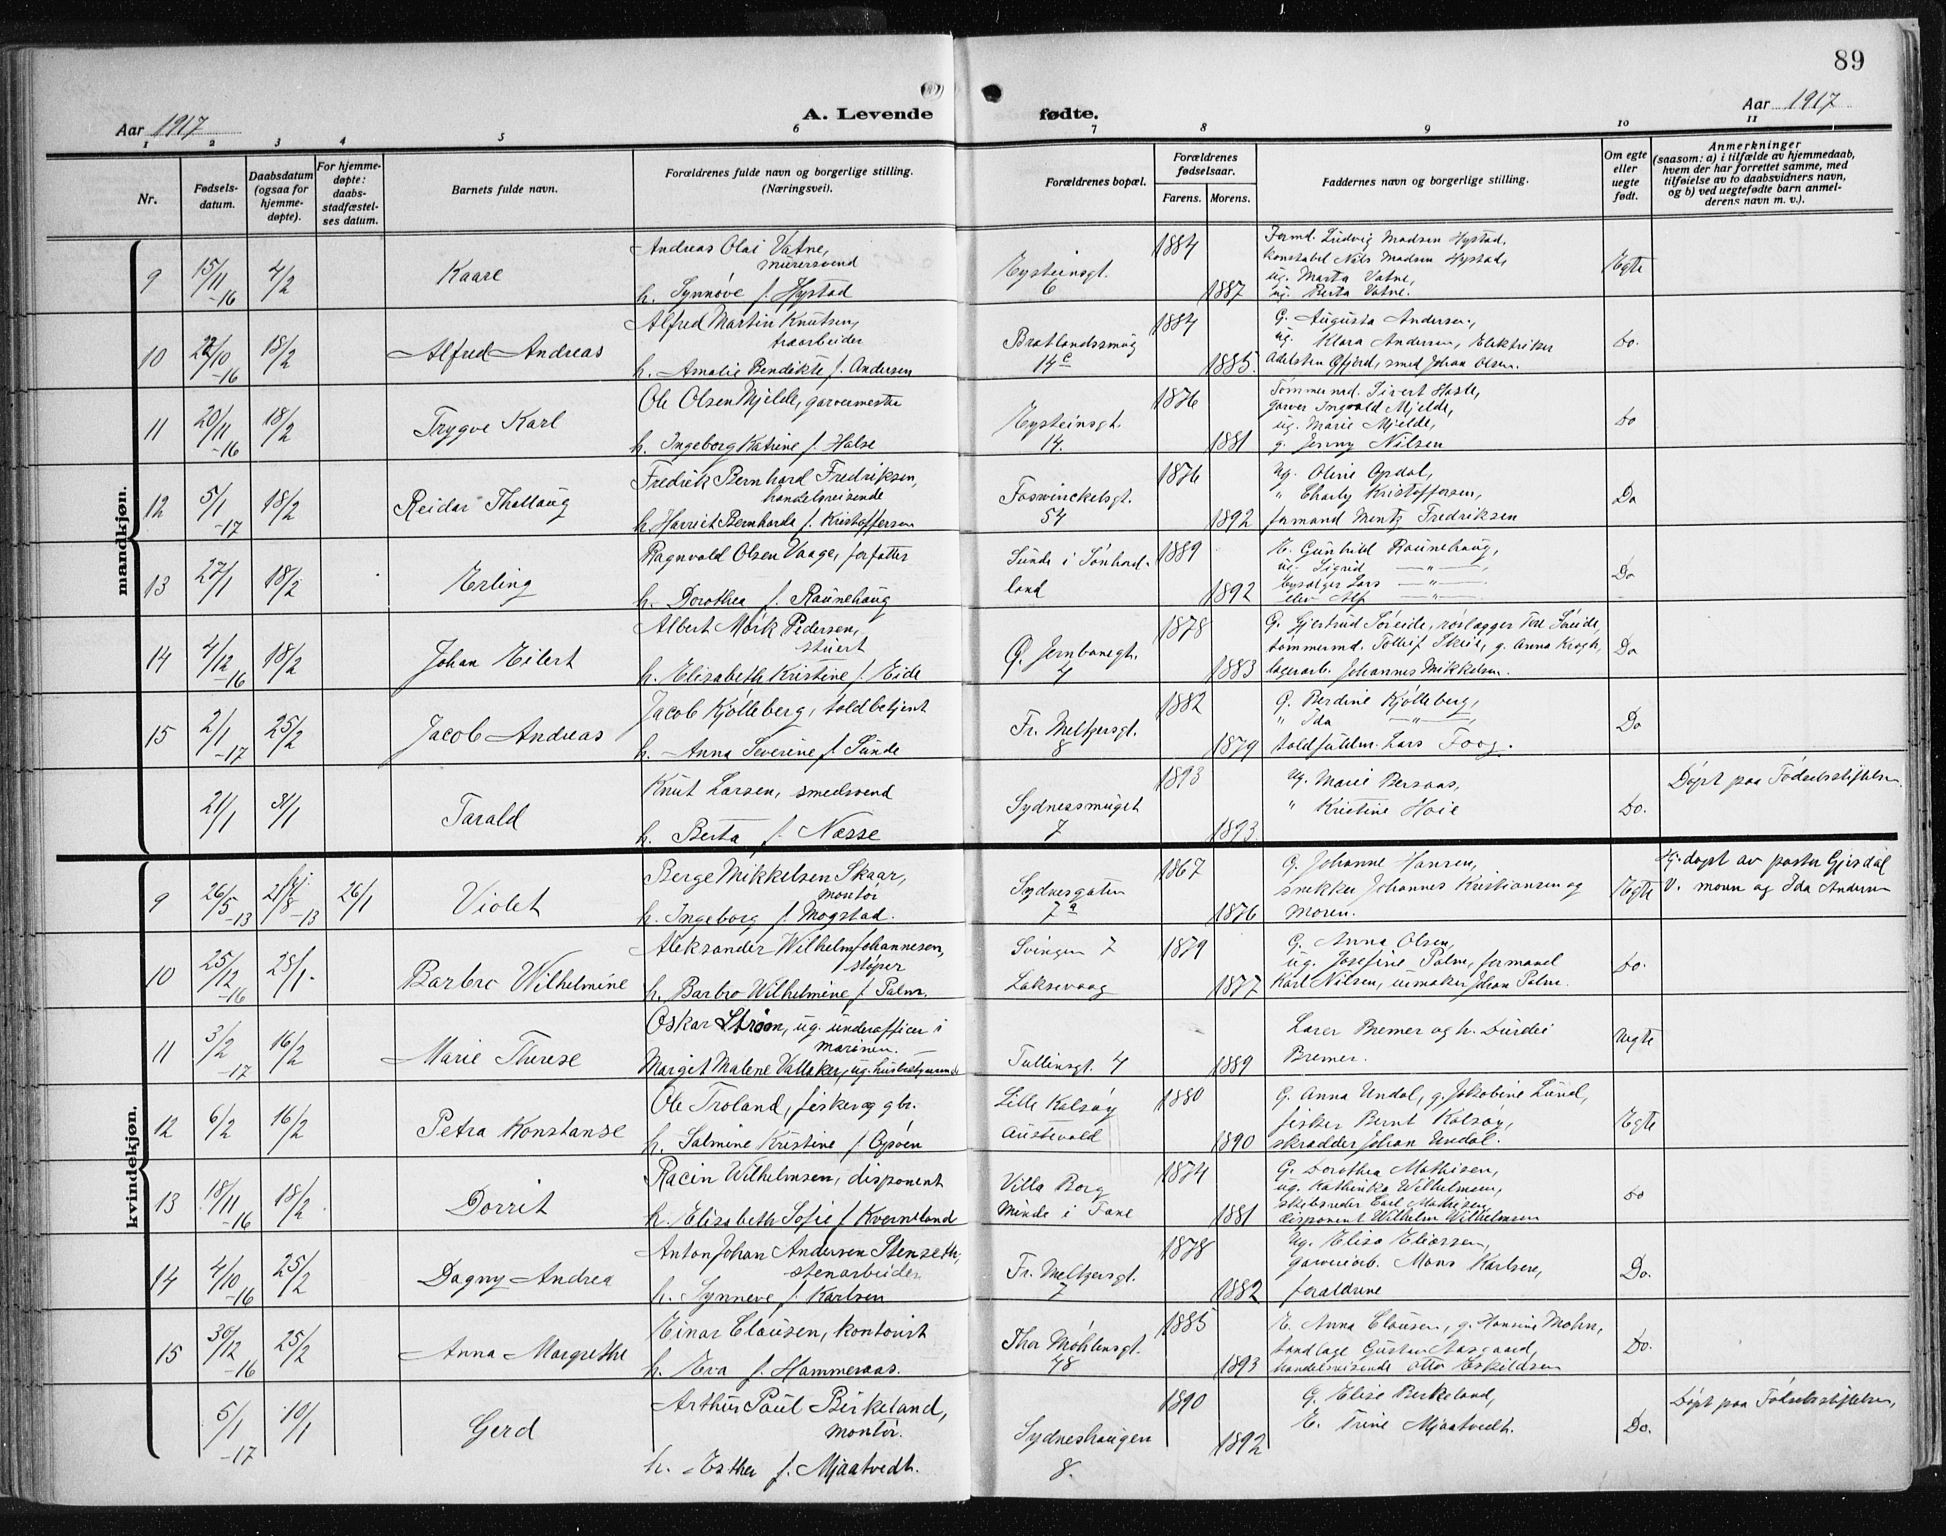 89
Aar 1917
A. Levende fødte.
Aar 1917
1 2 3 4 5 6 7 8 9 10 11
Nr.
Fødsels-
datum.
Daabsdatum
(ogsaa for
hjemme-
døpte).
For hjemme-
døpte:
daabs-
stadfæstel-
ses datum.
Barnets fulde navn.
Forældrenes fulde navn og borgerlige stilling.
(Næringsvei).
Forældrenes bopæl.
Forældrenes
fødselsaar.
Farens. Morens.
Faddernes navn og borgerlige stilling.
Om egte
eller
uegte
født.
Anmerkninger
(saasom: a) i tilfælde av hjemmedaab,
hvem der har forrettet samme, med
tilføielse av to daabsvidners navn,
og b) ved uegtefødte barn anmel-
derens navn m. v.).
mandkjøn.
9 15/11-16 4/2 Kaare
Andreas Olai Vatne,
murersvend
h. Synnøve f. Hystad
Eysteinsgt.
6
1884
1887
Formd. Ludvig Madsen Hystad,
konstabel Nils Madsen Hystad,
ug. Marta Vatne,
ug. Berta Vatne.
Egte
10 22/10-16 18/2 Alfred Andreas
Alfred Martin Knutsen,
træarbeider
h. Amalie Bendikte f. Andersen
Bratlandssmug
14c
1884
1885.
G. Augusta Andersen,
ug. Klara Andersen, Elektriker
Adelsten Gfjerd, smed Johan Olsen.
do.
11 20/11-16 18/2 Trygve Karl
Ole Olsen Mjelde, garvermester
h. Ingeborg Katrine f. Halse
Eysteinsgt.
14.
1876
1881
Tømmermd. Sivert Hasle,
garver Ingvald Mjelde,
ug. Marie Mjelde,
g. Jenny Nilsen
Do
12 5/1-17 18/2 Reidar Thollaug
Fredrik Bernhard Fredriksen,
handelsreisende
h. Harriet Bernharda f. Kristoffersen
Fosswinckelsgt.
54
1876
1892
Ug. Oline Opdal,
" Charly Kristoffersen,
formand Mentz Fredriksen
Do
13 27/1 18/2 Erling
Ragnvald Olsen Vaage, forfatter
h. Dorothea f. Raunehaug
Sunde i Sønhord-
land
1889
1892
E. Gunhild Raunehaug,
ug. Sigrid — " —,
Lars — " —
elev Alf — " —
Do
14 4/12-16 18/2 Johan Eilert
Albert Mørk Pedersen,
stuert
h. Elisabeth Kristine f. Eide
Ø. Jernbanegt.
4
1878
1883
G. Gjertrud Søreide, rørlægger Tore Søreide,
tømmermd. Tolleif Skeie, g. Anna Krogh,
lagerarb. Johannes Mikkelsen.
Do
15 2/1-17 25/2 Jacob Andreas
Jacob Kjølleberg, toldbetjent
h. Anna Severine f. Sunde
Fr. Meltzersgt.
8
1882
1879
G. Berdine Kjølleberg,
" Ida — " —,
toldfuldm. Lars Foog.
Do
21/1 31/1 Tarald
Knut Larsen, smedsvend
h. Berta f. Næsse
Sydnessmuget
7
1893
1893.
Ug. Marie Bersaas,
" Kristine Høie
Do.
Døpt paa Fødselsstiftelsen.
kvindekjøn.
9 26/5-13 21/8-13 26/1 Violet
Berge Mikkelsen Skaar,
montør
h. Ingeborg f. Mogstad.
Sydnesgaten
7a
1867
1876
G. Johanne Hansen,
snekker Johannes Kristiansen og
moren.
Egte
Hj. døpt av pastor Gjesdal
V. moren og Ida Andersen
10 25/12-16 28/1. Barbro Wilhelmine
Aleksander Wilhelm Johannesen,
støper
h. Barbro Wilhelmine f. Palm.
Svingen 7
Laksevaag
1879
1877
G. Anna Olsen,
ug. Josefine Palm, formand
Karl Nilsen, urmaker Johan Palm.
Do.
11 3/2-17 16/2 Marie Therese
Oskar Strøm, ug. underofficer i
marinen.
Margit Malene Vallaker, ug. husbestyrerinde
Tullinsgt. 4
1889
Lærer Bremer og h. Durdei
Bremer.
Uegte
12 6/2 16/2 Petra Konstanse
Ole Troland, fisker og gbr.
h. Salmine Kristine f. Opsøen
Lille Kalsøy
Austevold
1880
1890
G. Anna Undal, g. Jakobine Lund,
fisker Bernt Kalsøy,
skrædder Johan Undal.
Egte
13 18/11-16 18/2 Dorrit
Racin Wilhelmsen, disponent
h. Elisabeth Sofie f. Kverneland
Villa Borg
Minde i Fane
1874
1881
G. Dorothea Mathisen,
ug. Kathinka Wilhelmsen,
skibsreder Carl Mathisen,
disponent Wilhelm Wilhelmsen
do
14 4/10-16 25/2 Dagny Andrea
Anton Johan Andersen Stenseth,
stenarbeider
h. Synneve f. Karlsen
Fr. Meltzersgt.
7
1878
1882
Ug. Elisa Eliassen,
garveriarb. Mons Karlsen,
forældrene
Do.
15 30/12-16 25/2 Anna Margrethe
Einar Clausen, kontorist
h. Eva f. Hammeraas.
Thor Møhlensgt.
48
1885
1893
E. Anna Clausen, g. Hansine Mohn,
tandlæge Gustav Aasgaard,
handelsreisende Otto Eskildsen
Do.
5/1-17 10/1 Gerd
Arthur Paul Birkeland,
montør.
h. Esther f. Mjaatvedt.
Sydneshaugen
8.
1890
1892
G. Elise Birkeland,
E. Trine Mjaatvedt.
Do.
Døpt paa Fødselsstiftelsen,